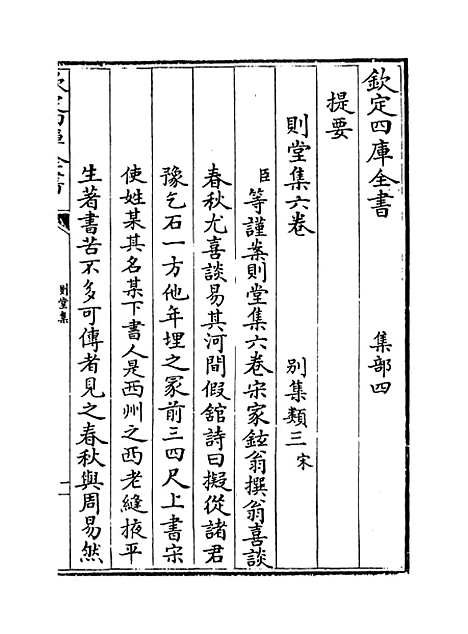 欽定四庫全書　集部四
提要
則堂集六卷　別集類三宋
臣等謹案則堂集六卷宋家鉉翁撰翁喜談
春秋尤喜談易其河間假舘詩曰擬從諸君
豫乞石一方他年埋之冢前三四尺上書宋
使姓某其名某下書人是西州之西老縫掖平
生著書苦不多可傳者見之春秋與周易然
則堂集